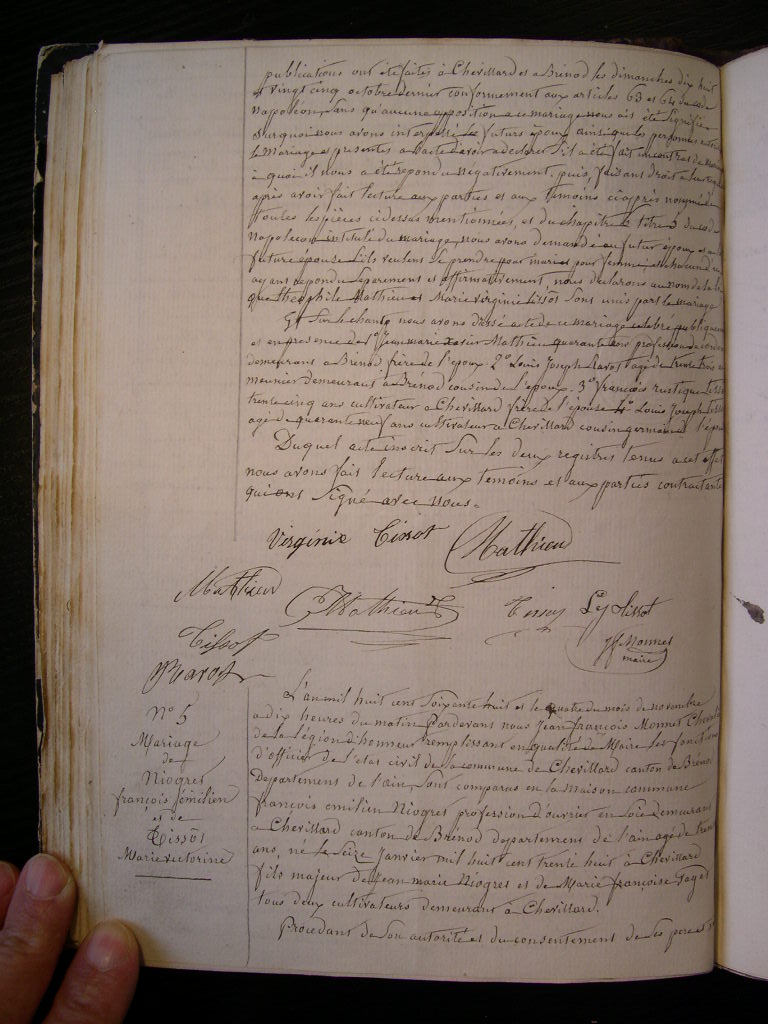 publications ont été faites à Chevillard et a Brénod les dimanches dix huit
et vingt cinq octobre dernier conformement aux articles 63 et 64 du code
Napoléon, sans qu'aucune opposition a ce mariage nous ait été signifiée
Surquoi nous avons interpellé les futurs époux ainsi que les personnes
le Mariage et presentes a l'acte d'avoir a declarer s'il a été fait un contrat de mariage
à quoi il nous a été repondu negativement. puis, faisant droit a leur
après avoir fait lecture aux parties et aux temoins ci après nommés de
toutes les pièces ci dessus mentionnées, et du chapitre 6 titre 5 du code
Napoleon intitulé du mariage, nous avons demandé au futur époux et a la
future epouse s'ils veulent se prendre pour mari et pour femme, et chacun d'eux
ayant repondu separement et affirmativement, nous declarons au nom de la loi
que theophile Mathieu et Marie virginie Tissot sont unis par le mariage
Et Sur le champ nous avons dressé acte de ce mariage celebré publiquement
et en presence de 1° Jean marie xavier Mathieu quarante ans profession de
demeurant a Brénod, frère de l'époux. 2° Louis Joseph Ravot agé de trente trois
meunier demeurant à Brénod cousin de l'epoux. 3° François rustique
trente cinq ans cultivateur a Chevillard frère de l'épouse 4° Louis Joseph
agé de quarante neuf ans cultivateur a Chevillard cousin germain
Duquel acte inscrit Sur les deux registres tenus a cet effet
nous avons fait lecture aux temoins et aux parties contractantes
qui ont Signé avec nous.
Virginie Tissot Mathieu
Mathieu Mathieu Tissot
Tissot Monnet
maire
Ravot
N° 5
Mariage
de
Niogret
françois émilien
et de
Tissot
Marie victorine
L'an mil huit cent soixante huit et le quatre du mois de novembre
a dix heures du matin Pardevant nous Jean françois Monnet Chevalier
de la légion d'honneur remplissant en qualité de Maire les fonctions
d'officier de l'etat civil de la commune de Chevillard canton de Brénod
Departement de l'ain, Sont comparus en la maison commune
françois emilien Niogret profession d'ouvrier en soie demeurant
a Chevillard canton de Brénod departement de l'ain agé de trente
ans, né le Seize Janvier mil huit cent trente huit à Chevillard
fils majeur de Jean marie Niogret et de Marie françoise
tous deux cultivateurs demeurant à Chevillard.
Procedant de Son autorité et du consentement de Ses pere et